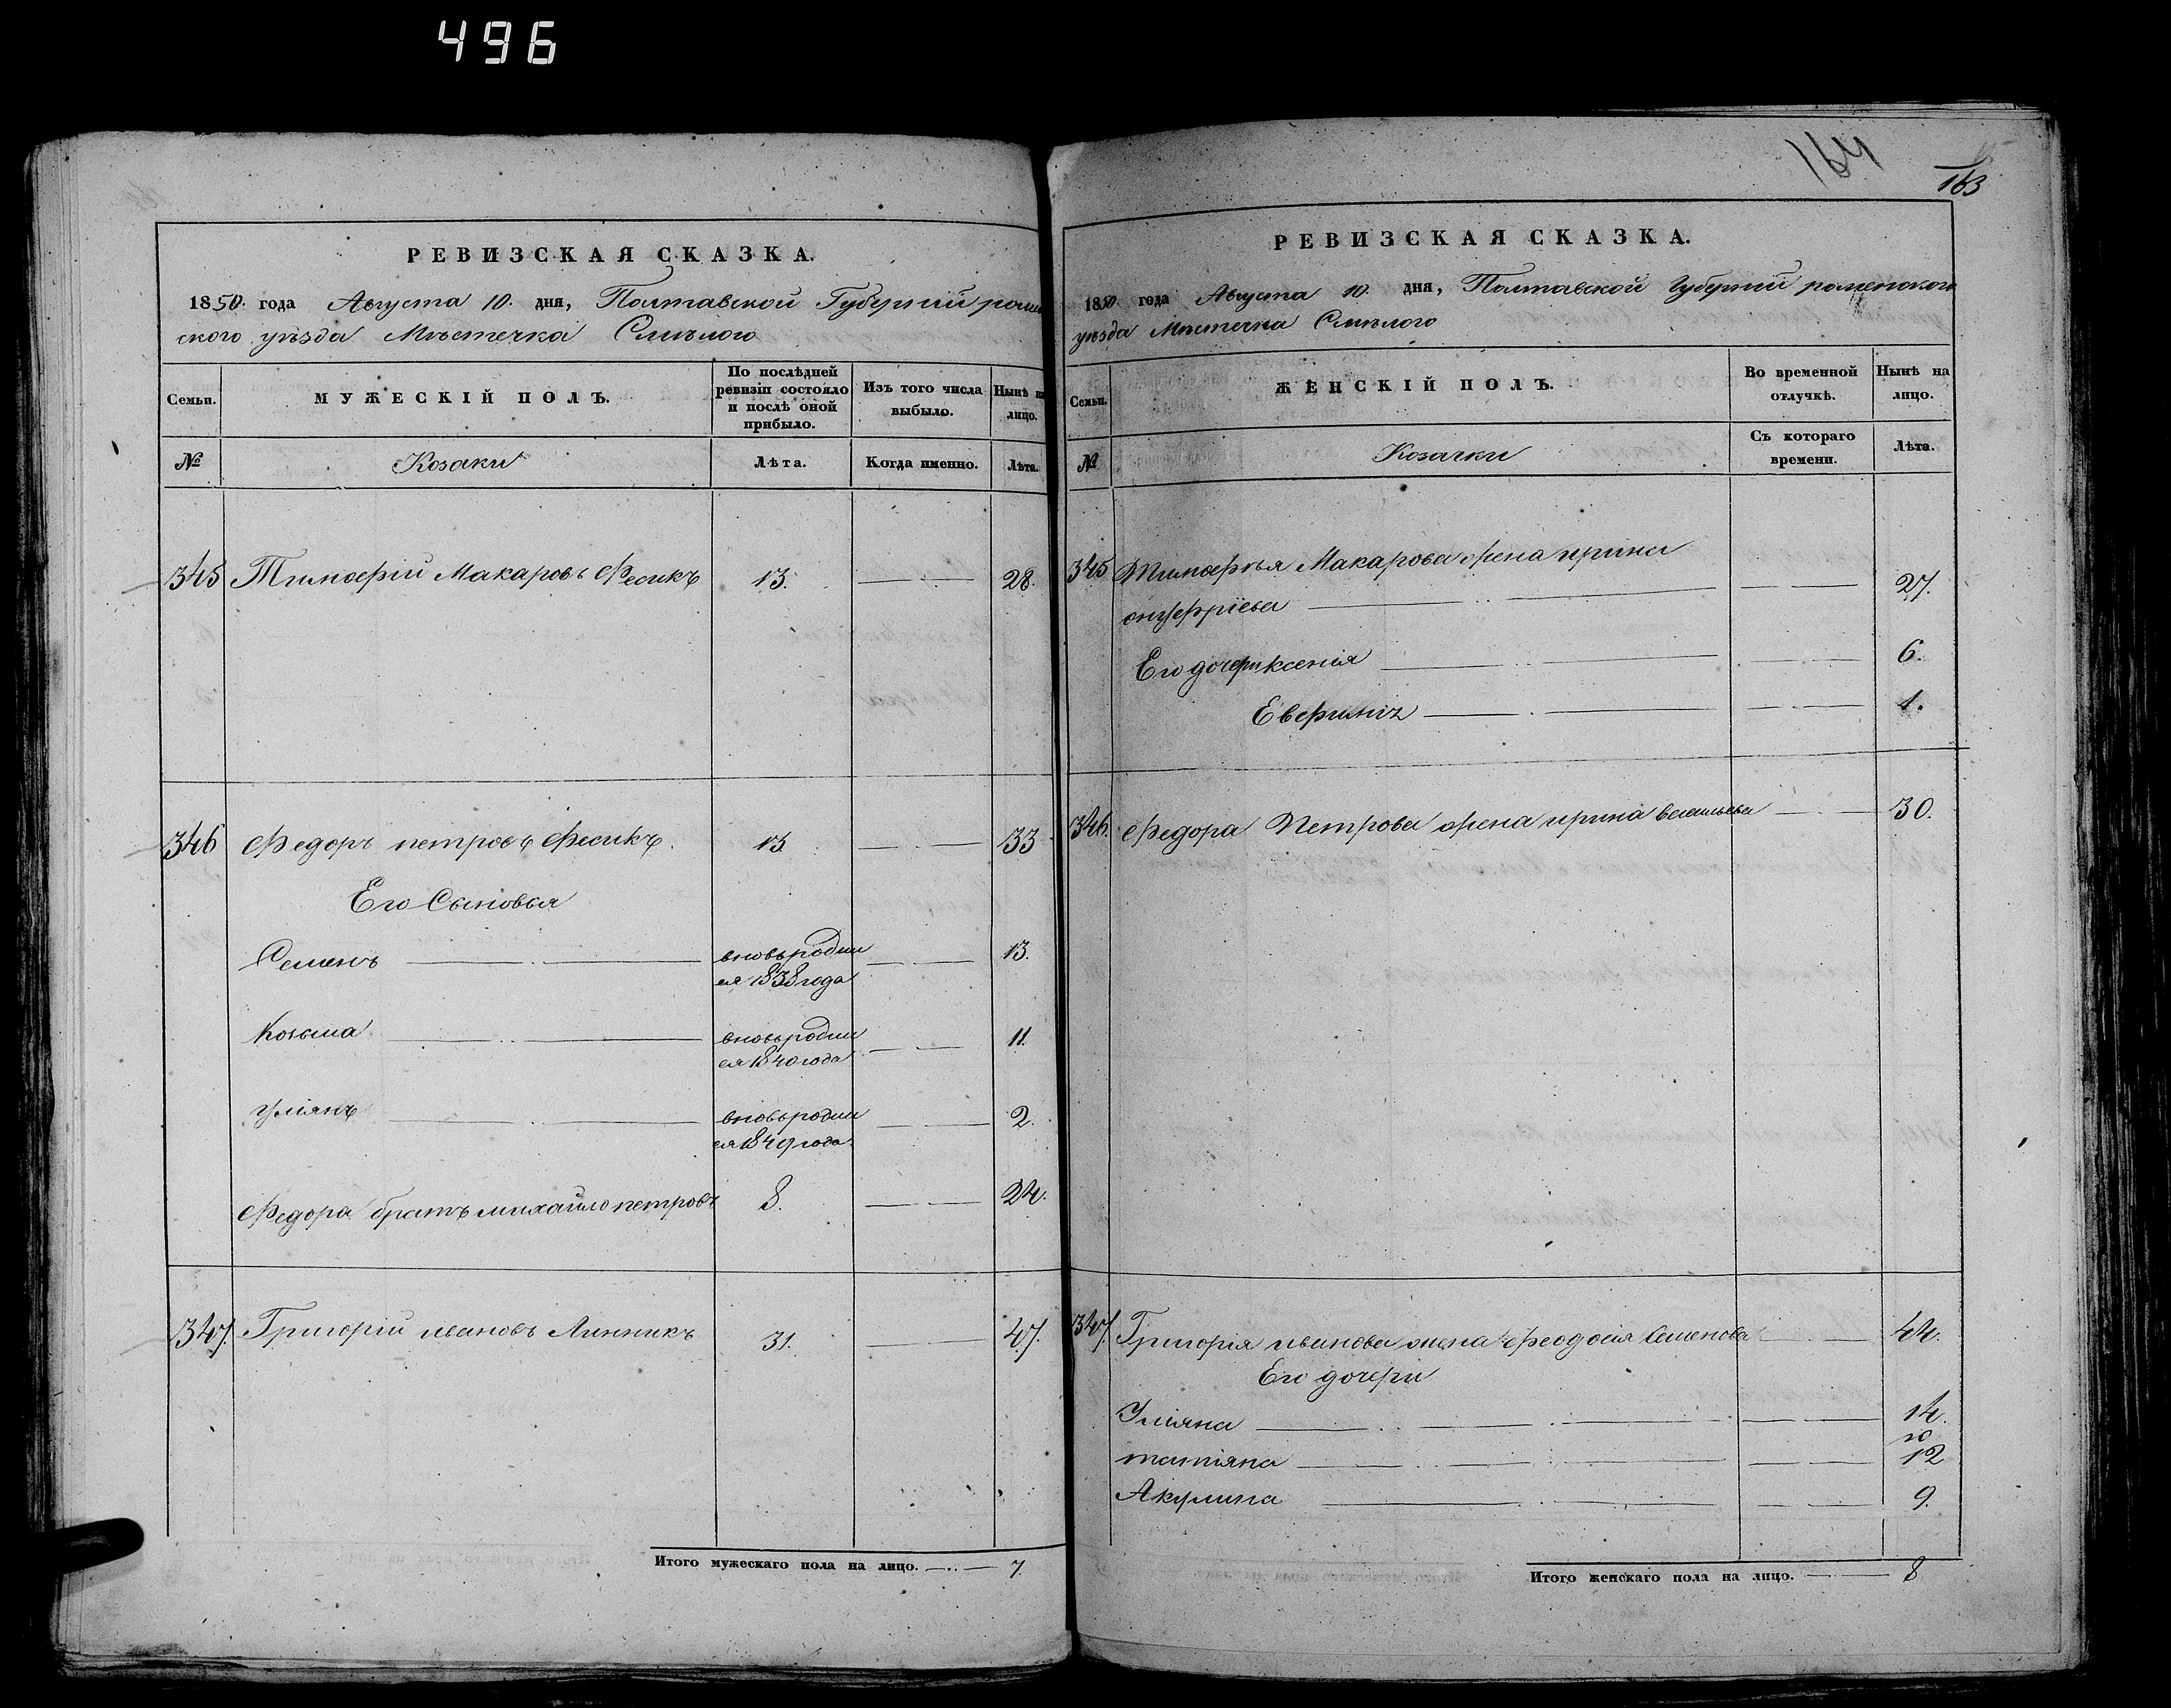 496
РЕВИЗСКАЯ СКАЗКА.
1850. года Августа 10. дня, Полтавской Губерніи ромен
ского уѣзда Мѣстечка Смѣлого
Семьи.
МУЖЕСКІЙ ПОЛЪ.
По послѣдней
ревизіи состояло
и послѣ оной
прибыло.
Изъ того числа
выбыло.
Нынѣ на
лицо.
№
Козаки
Лѣта.
Когда именно.
Лѣта.
345 Тимофѣй Макаровъ Фесикъ 13. 28.
346 Федоръ петровъ Фесикъ. 13 33
Его Сыновья
Семенъ вновьродил 13.
ся 1838 года
Козьма вновьродил 11.
ся 1840 года
Уліянъ вновьродил 2.
ся 1849 года.
Федора братъ михайло петровъ 8. 24.
347. Григорій ивановъ Линникъ 31. 47.
Итого мужескаго пола на лицо. 7.
164
163
РЕВИЗСКАЯ СКАЗКА.
1850. года Августа 10. дня, Полтавской Губерніи роменского
уѣзда Мѣстечка Смѣлого
Семьи.
ЖЕНСКІЙ ПОЛЪ.
Во временной
отлучкѣ.
Нынѣ на
лицо.
№
Козачки
Съ котораго
времени.
Лѣта.
345 Тимофѣя Макарова жена ирина
онуфріева 27.
Его дочери ксенія 6.
1.
346. Федора Петрова жена ирина васильева 30.
347. Григорія иванова жена феодосія Семенова 44.
Его дочери
Уліяна 14.
10
татіяна 12
Акулина 9.
Итого женскаго пола на лицо. 8